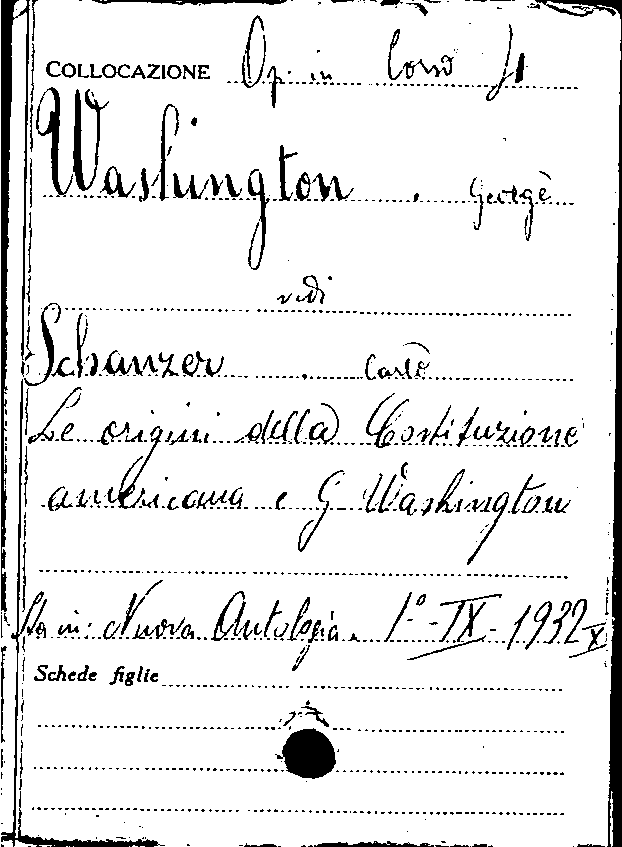 COLLOCAZIONE Op. in Corso
Washington . George
vedi
Schanzer . Carlo
Le origini della Costituzione
americana e G Washington
Sta in: Nuova Antologia. 1°-IX-1932 X
Schede figlie